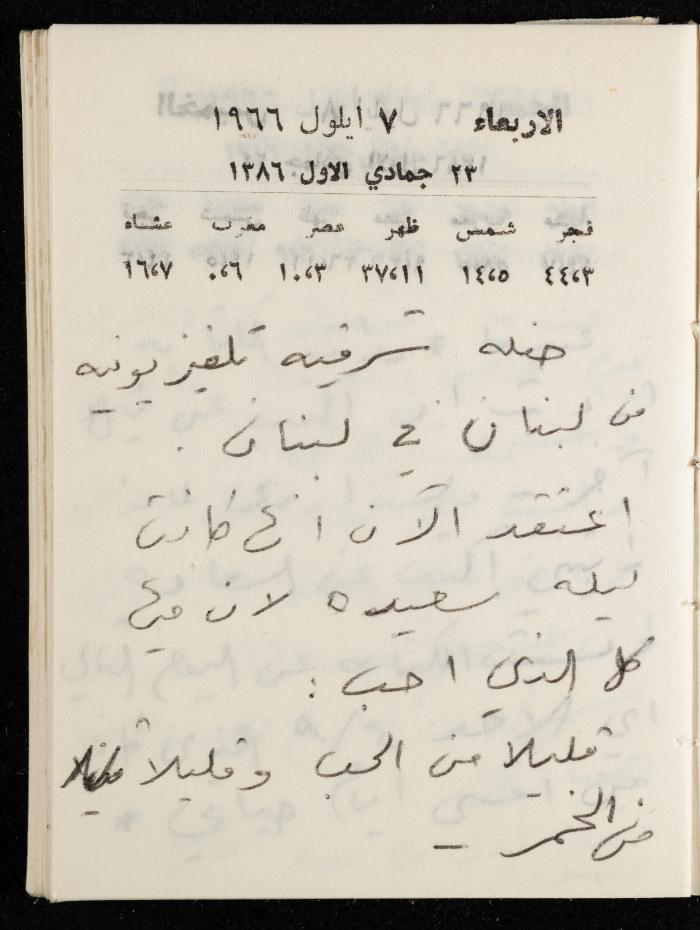 الاربعاء ٧ ايلول ١٩٦٦
٢٣ جمادي الاول ١٣٨٦
فجر شمس ظهر عصر مغرب عشاء
٤٤،٣ ١٤،٥ ٣٧،١١ ١٠،٣ ٠،٦ ١٦،٧
حفله شرقيه تلفزيونيه
من لبنان في لبنان.
اعتقد الآن انها كانت
ليله سعيده لان فيها
كل الذي احب:
قليلا من الحب وقليلا
من الخمر –